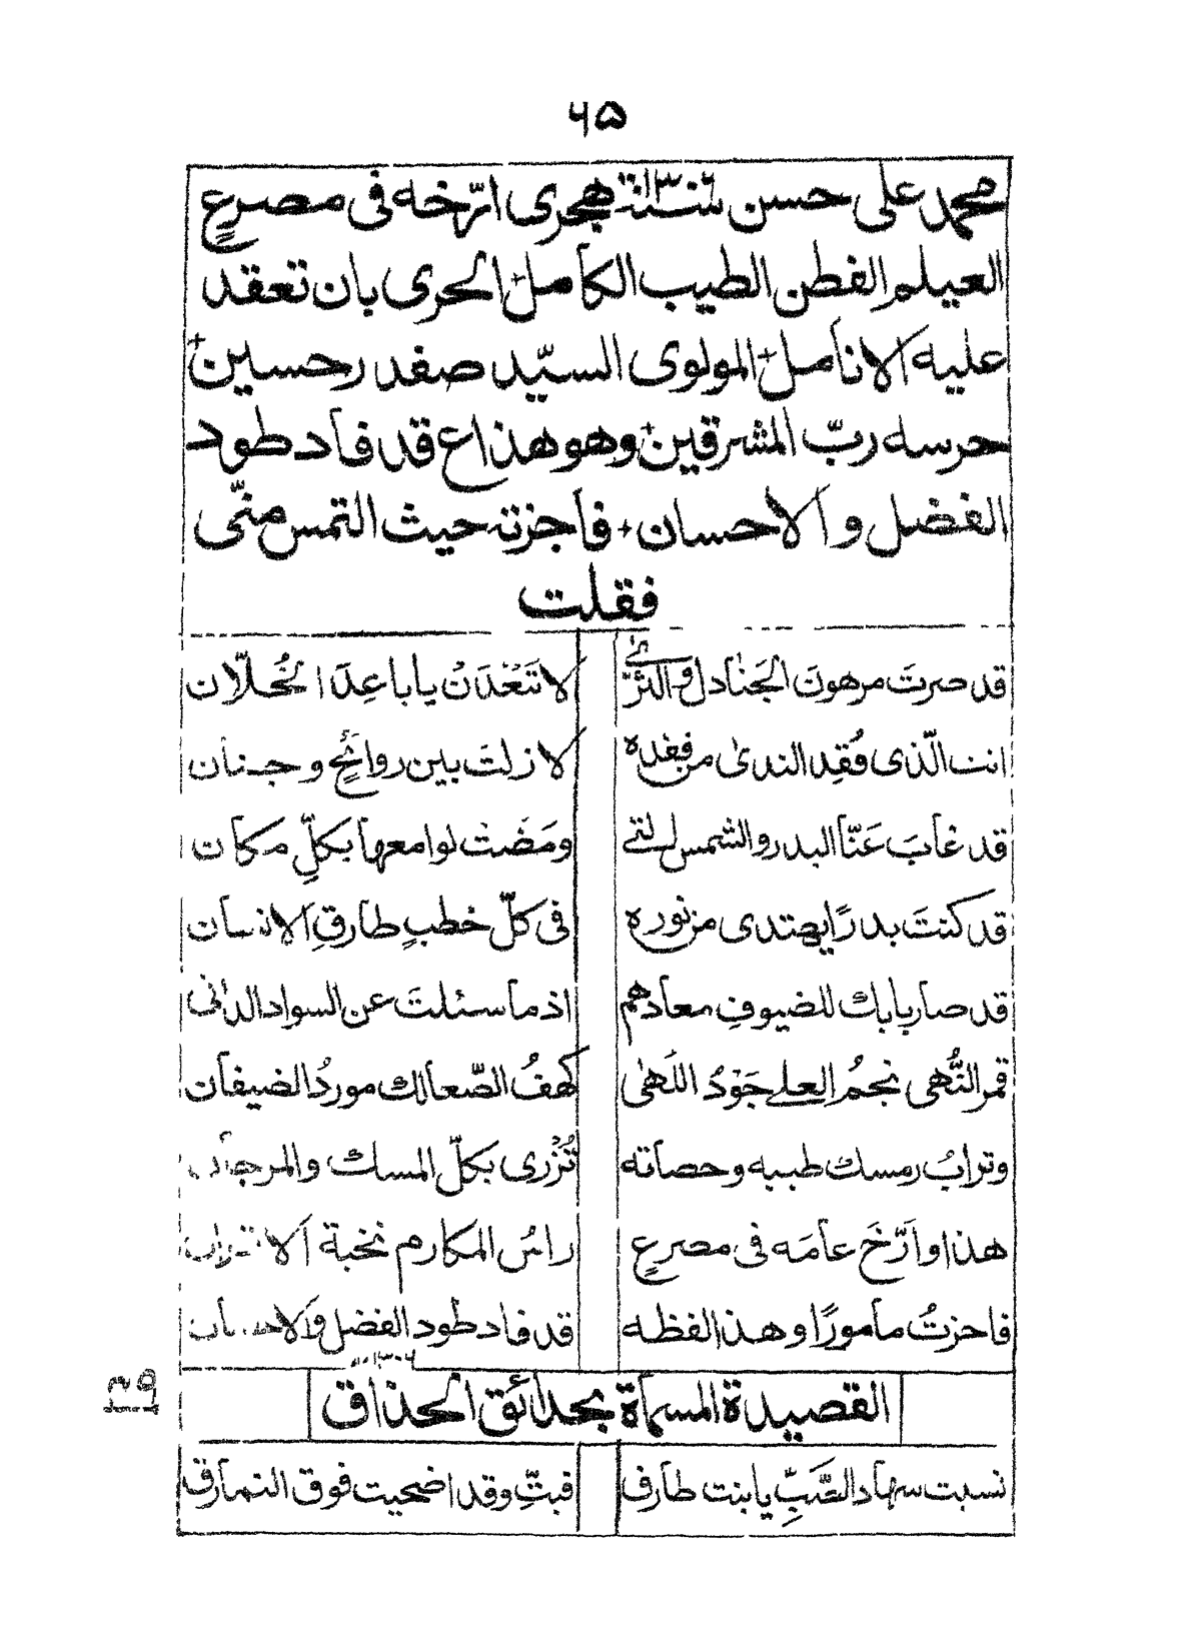 ۶۵
محمد علی حسن سنة هجری ارّخه فی مصرعٍ
العیلم الفطن الطیب الکامل الحری بان تعقد
علیه الانامل المولوی السیّد صفدر حسین
حرسه ربّ المشرقین وهو هذا ع قد فاد طود
الفضل والاحسان فاجزته حیث التمس منّی
فقلت
قد صرتَ مرهونَ الجَنادل والثرّٰی لا تَبْعُدَنْ یا باعِدَ الخُلّان
انت الّذی فُقِد الندیٰ من فقده لا زلتَ بین روائحٍ وجنان
قد غابَ عَنّا البدر والشمس التے ومَضَتْ لوامعها بکلِّ مکان
قد کنتَ بدرًا یهتدی من نوره فی کلّ خطبٍ طارقِ الانسان
قد صار بابك للضیوفِ معادهم اذ ما سئلتَ عن السواد الدانی
قمر النُّهی نجمُ العلے جَوْدُ اللَهیٰ کهفُ الصّعالك موردُ الضیفان
وترابُ رمسك طیبه وحصاته تُزْری بکلّ المسك والمرجان
هذا وارَّخَ عامَه فی مصرعٍ راسُ المکارم نخبة الاقران
فاحزتُ مامورًا وهذا لفظه قد فاد طود الفضل والاحسان
القصیدة المسماة بحدائق الحذاق
نسبت سهاد الصَّبِّ یا بنت طارق فبتِّ وقد اضحیت فوق النمارق